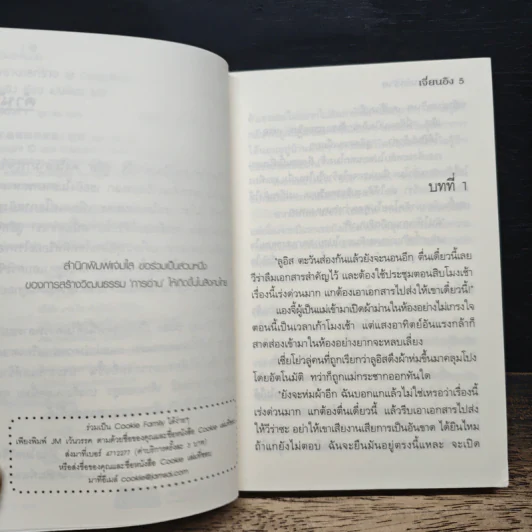 สำนักพิมพ์แจ่มใส ขอร่วมเป็นส่วนหนึ่ง
ของการสร้างวัฒนธรรม 'การอ่าน' ให้เกิดขึ้นในสังคมไทย
ร่วมเป็น Cookie Family ได้ง่ายๆ
เพียงพิมพ์ JM เว้นวรรค ตามด้วยชื่อของคุณและชื่อหนังสือ Cookie เล่มที่ชอบ
ส่งมาที่เบอร์ 4712377 (ค่าบริการครั้งละ 3 บาท)
หรือส่งชื่อของคุณและชื่อหนังสือ Cookie เล่มที่ชอบ
มาที่อีเมล์ cookie@jamsai.com
เจี่ยนอิง 5
บทที่ 1
"ลูอิส ตะวันส่องก้นแล้วยังจะนอนอีก ตื่นเดี๋ยวนี้เลย
วีร่าลืมเอกสารสำคัญไว้ และต้องใช้ประชุมตอนสิบโมงเช้า
เรื่องนี้เร่งด่วนมาก แกต้องเอาเอกสารไปส่งให้เขาเดี๋ยวนี้!"
แองจี้ผู้เป็นแม่เข้ามาเปิดผ้าม่านในห้องอย่างไม่เกรงใจ
ตอนนี้เป็นเวลาเก้าโมงเช้า แต่แสงอาทิตย์อันแรงกล้าก็
สาดส่องเข้ามาในห้องอย่างยากจะหลบเลี่ยง
เซี่ยโย่วลู่คนที่ถูกเรียกว่าลูอิสดึงผ้าห่มขึ้นมาคลุมโปง
โดยอัตโนมัติ ทว่าก็ถูกแม่กระชากออกทันใด
"ยังจะห่มผ้าอีก ฉันบอกแกแล้วไม่ใช่เหรอว่าเรื่องนี้
เร่งด่วนมาก แกต้องตื่นเดี๋ยวนี้ แล้วรีบเอาเอกสารไปส่ง
ให้วีร่าซะ อย่าให้เขาเสียงานเสียการเป็นอันขาด ได้ยินไหม
ถ้าแกยังไม่ตอบ ฉันจะยืนมันอยู่ตรงนี้แหละ จะเปิด